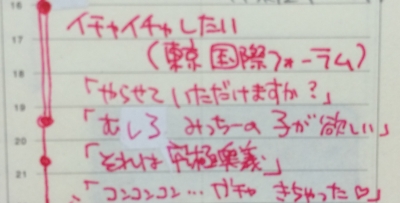 16
イチャイチャしたい
17
(東京国際フォーラム)
18
「やらせていただけますか?」
19
「むしろ みっちーの子が欲しい」
20
「それは究極奥義」
21
「コンコンコン… ガチャ きちゃった♡」